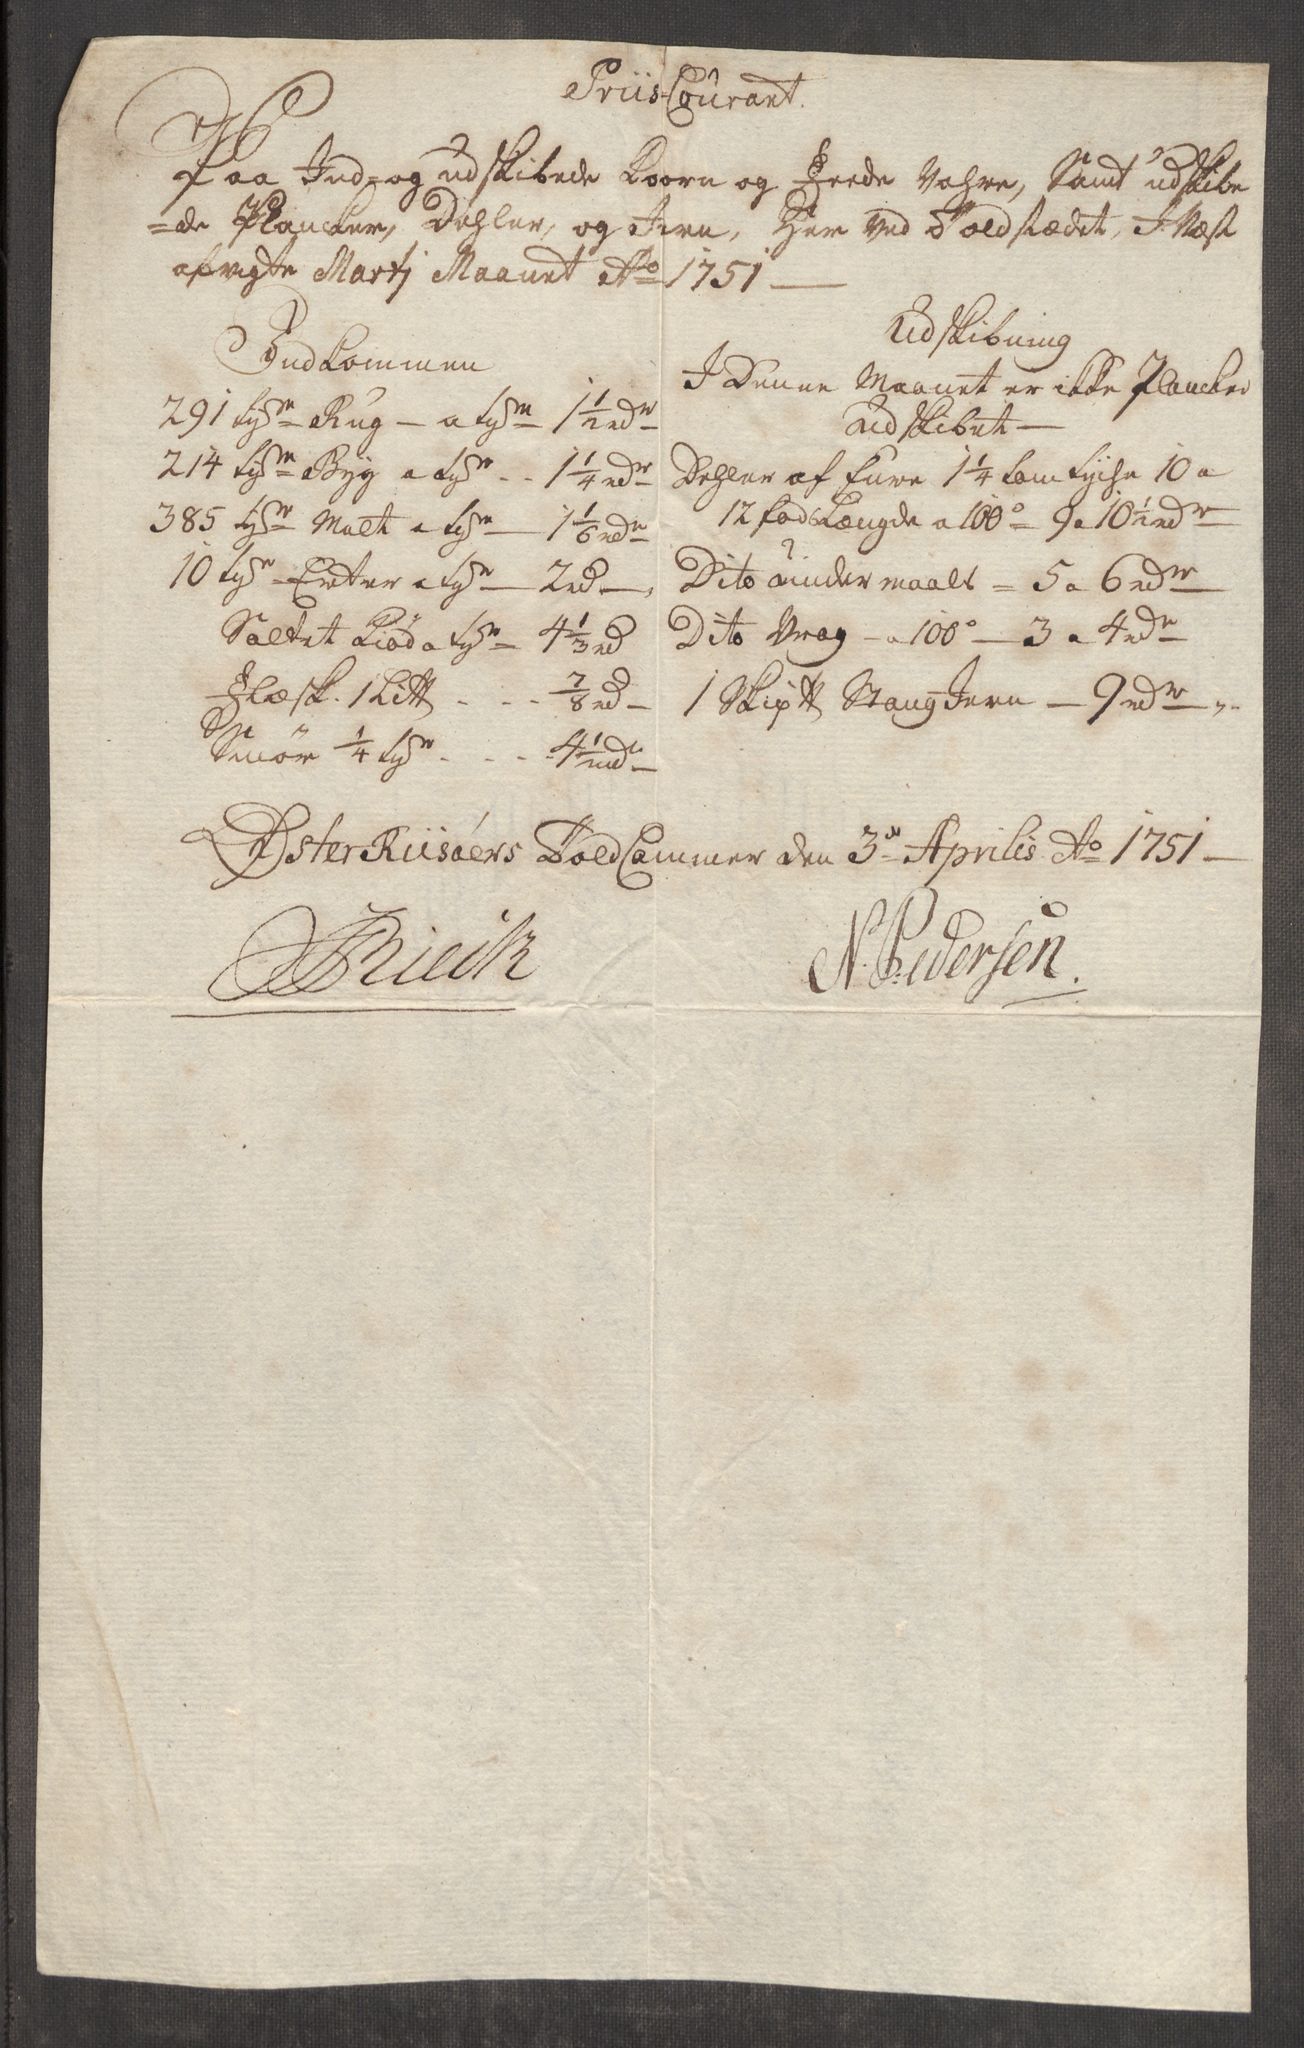 Priis-Courant.
Paa Ind- og udskibede Koorn og Feede Vahre, Samt udskibe
=de Plancker, Dehler, og Jern, Her ved Toldstædet, I Næst
afvigte Martj Maanet Ao 1751
Indkommen
291 tyr Rug - a tyr 1 1/2 rdr
214 tyr Byg a tyr - - 1 1/4 rdr
385 tyr Malt a tyr 1 1/6 rdr
10 tyr Erter a tyr 2 rd
Saltet Kiød a tyr 4 1/3 rd
Flæsk. 1 Li℔ . - - 7/8 rd
Smør 1/4 tyr . . - 4 1/2 rdr
Udskibning
I Denne Maanet er ikke Plancker
Udskibet
Dehler af Fure 1 1/4 tom tyche 10 a
12 fods Længde a 100o 9 a 10 1/2 rdr
Dito undermaals = 5 a 6 rdr
Dito Vrag - a 100o 3 a 4 rdr
1 Skip℔ Stang Jern - 9 rdr
Øster Riisöers Told Cammer den 3de Aprilis Ao 1751
N. Pedersen.